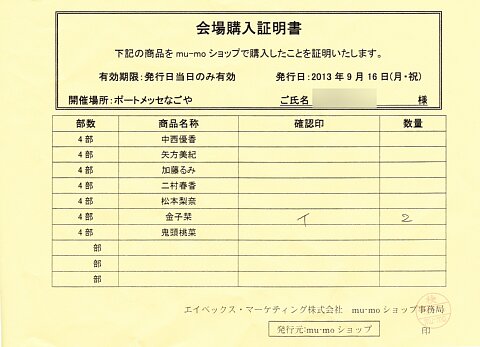 会場購入証明書
下記の商品をmu-moショップで購入したことを証明いたします。
有効期限:発行日当日のみ有効 発行日:2013年9月16日(月・祝)
開催場所:ポートメッセなごや ご氏名 様
部数 商品名称 確認印 数量
4部 中西優香
4部 矢方美紀
4部 加藤るみ
4部 二村春香
4部 松本梨奈
4部 金子栞 イ 2
4部 鬼頭桃菜
部
部
部
エイベックス・マーケティング株式会社 mu-moショップ事務局
発行元:mu-moショップ 印